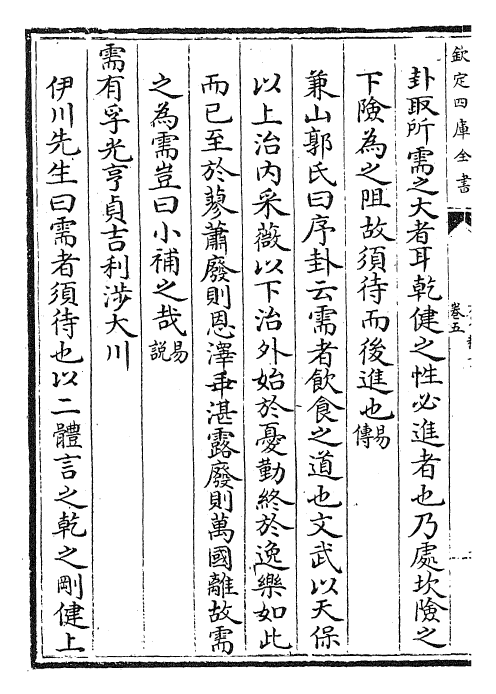 欽定四庫全書
卷五
卦取所需之大者耳乾健之性必進者也乃處坎險之
下險為之阻故須待而後進也易傳
兼山郭氏曰序卦云需者飲食之道也文武以天保
以上治内采薇以下治外始於憂勤終於逸樂如此
而已至於蓼蕭廢則恩澤乖湛露廢則萬國離故需
之為需豈曰小補之哉易說
需有孚光亨貞吉利涉大川
伊川先生曰需者須待也以二體言之乾之剛健上